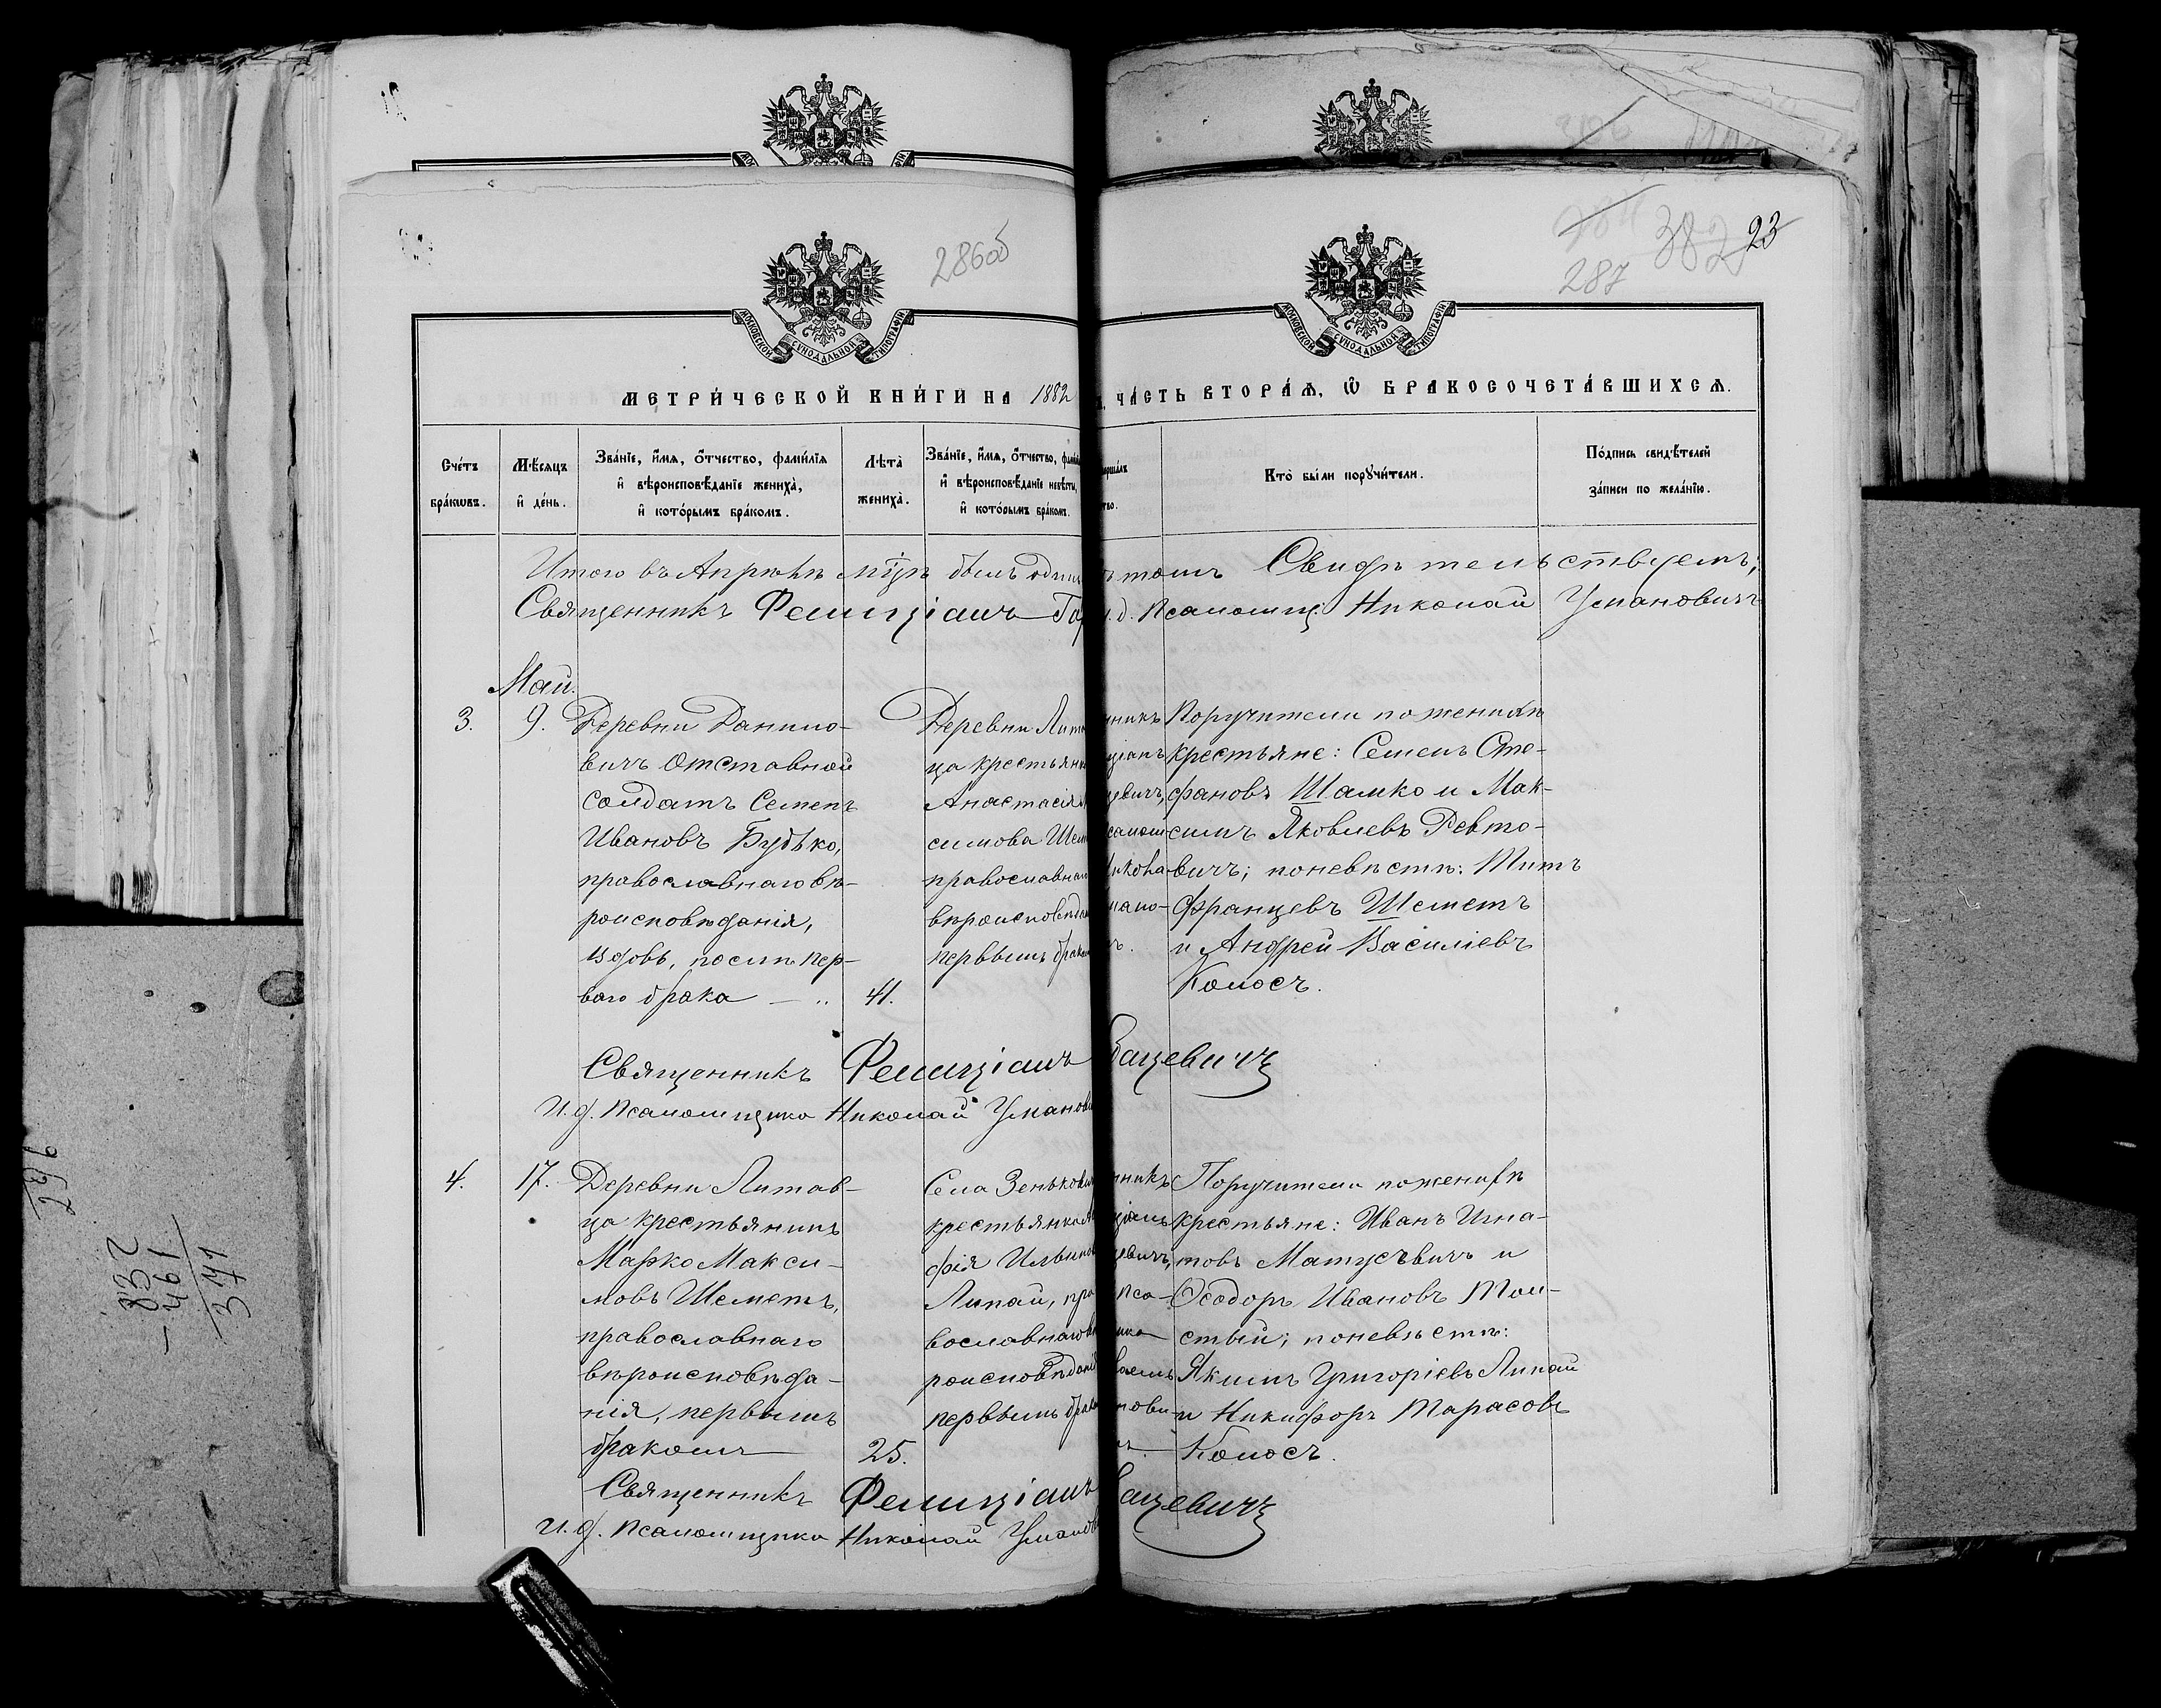 286об
23
382
287
МОСКОВСКОЙ СУНОДАЛЬНОЙ ТИПОГРАФІИ
МОСКОВСКОЙ СУНОДАЛЬНОЙ ТИПОГРАФІИ
МЕТРИ́ЧЕСКОЙ КНИ́ГИ НА 1882
ЧА́СТЬ ВТОРА́Ѧ, Ѽ БРАКОСОЧЕТА́ВШИХСѦ.
Сче́тъ бра́кѡвъ.
Мѣ́сѧцъ и҆ де́нь.
Зва́нїе, и҆́мѧ, ѻ҆́тчество, фами́лїѧ и҆ вѣроисповѣ́данїе жениха̀, и҆ кото́рымъ бра́комъ.
Лѣта̀ жениха̀.
Зва́нїе, и҆́мѧ, ѻ҆́тчество, и҆ вѣроисповѣ́данїе невѣ́сты, и҆ кото́рымъ бра́комъ.
Кто̀ бы́ли порꙋчи́тели.
По́дпись свидѣ́телей за́писи по жела́нїю.
Итого въ Апрѣлѣ м͠цѣ былъ один
томъ Свидѣтельствуемъ;
Священникъ Фелиціанъ
д. Псаломщ. Николай Умановичъ
Май.
3.
9.
Деревни Данило-
вичъ Отставной
солдатъ Семенъ
Ивановъ Будько,
православнаго вѣ-
роисповѣданія,
вдовъ, послѣ пер-
ваго брака
41.
Деревни Лита
ца крестьянк
Анастасія
симова Шем
православнаг
вѣроисповѣда
первымъ брако
нникъ
ціанъ
цевичъ,
саломщ
икола
мано-
ъ.
Поручители по женихѣ
крестьяне: Семенъ Сте-
фановъ Шамко и Мак-
симъ Яковлевъ Ревто-
вичъ; по невѣстѣ: Титъ
Францевъ Шеметъ
и Андрей Василіевъ
Колосъ.
Священникъ Фелиціанъ
бацевичъ
И. д. Псаломщика Николай Уманови
4.
17.
Деревни Литав-
ца крестьянинъ
Марко Макси-
мовъ Шеметъ,
православнаго
вѣроисповѣда-
нія, первымъ
бракомъ
25.
Села Зенькови
крестьянка
фія Ильина
Липай, пра
вославнаго вѣ
роисповѣдані
первымъ брако
нникъ
ціанъ
цевичъ,
Пса-
щика
нови-
Поручители по женихѣ
крестьяне: Иванъ Игна-
товъ Матусѣвичъ и
Ѳеодоръ Ивановъ Тол-
стый; по невѣстѣ:
Якимъ Григоріевъ Липай
и Никифоръ Тарасовъ
Колосъ.
Священникъ Фелиціанъ
бацевичъ
И. д. Псаломщика Николай Уманов
296
832
- 461
371